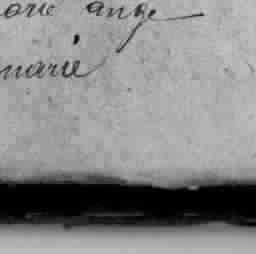 ange
marie